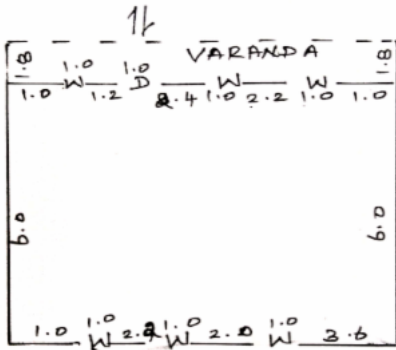 VARANDA
1.8 1.8
1.0 1.0
1.0 W 1.2 D 2.4 W 1.0 2.2 W 1.0 1.0
6.0 6.0
1.0 1.0 1.0
1.0 W 2.2 W 2.0 W 3.6